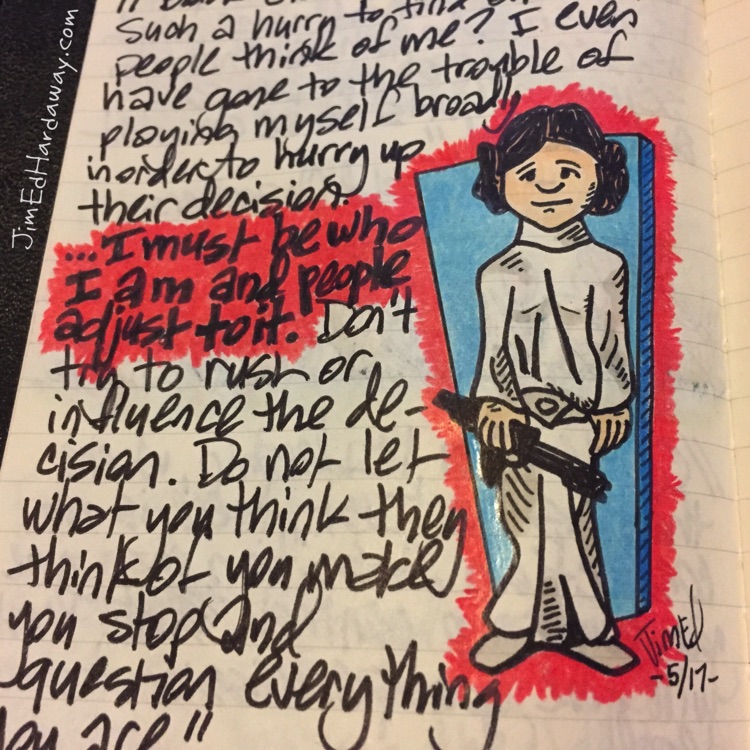 Such a hurry to find
people think of me? I even
have gone to the trouble of
playing myself broadly
in order to hurry up
their decision.
...I must be who
I am and people
adjust to it. Don't
try to rush or
influence the de-
cision. Do not let
what you think they
think of you make
you stop and
question everything
you are"
JimEd
-5/17-
JimEdHardaway.com